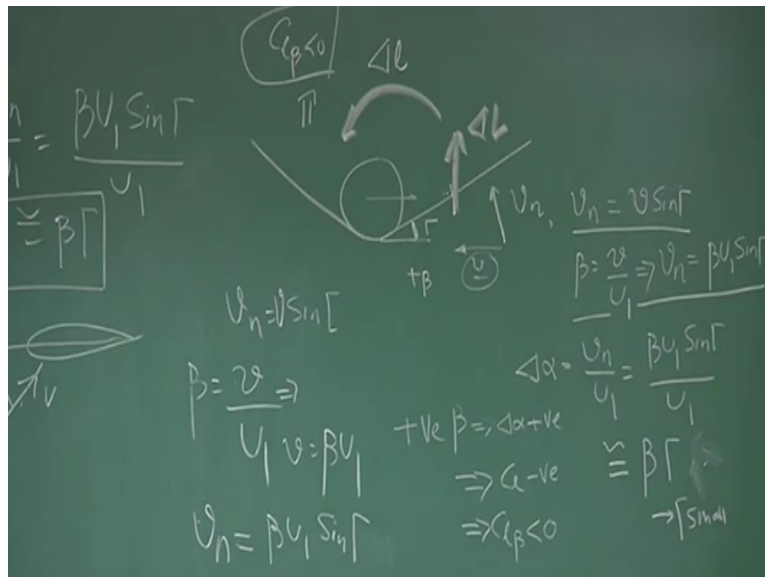 C_{lβ}<0
π
Δl
ΔL
Γ
+β
v
v_n
= βU_1 Sin Γ / U_1
≅ βΓ
V
v_n = v Sin Γ
β = v / U_1 ⇒
v = βU_1
v_n = βU_1 Sin Γ
v_n = v Sin Γ
β = v / U_1 ⇒ v_n = βU_1 Sin Γ
Δα = v_n / U_1 = βU_1 Sin Γ / U_1
≅ βΓ
→ Γ small
+ve β ⇒, Δα +ve
⇒ C_l -ve
⇒ C_{lβ}<0